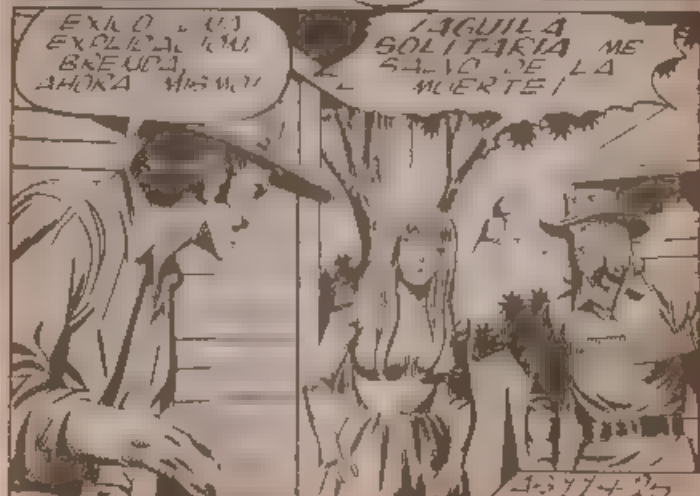 EXIJO UNA
EXPLICACION,
BRENDA,
AHORA MISMO!
¡AGUILA
SOLITARIA ME
SALVO DE LA
MUERTE!